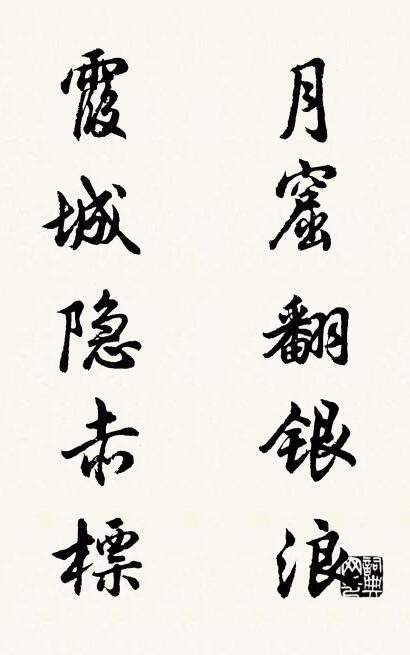 月窟翻银浪
霞城隐赤標
词典网